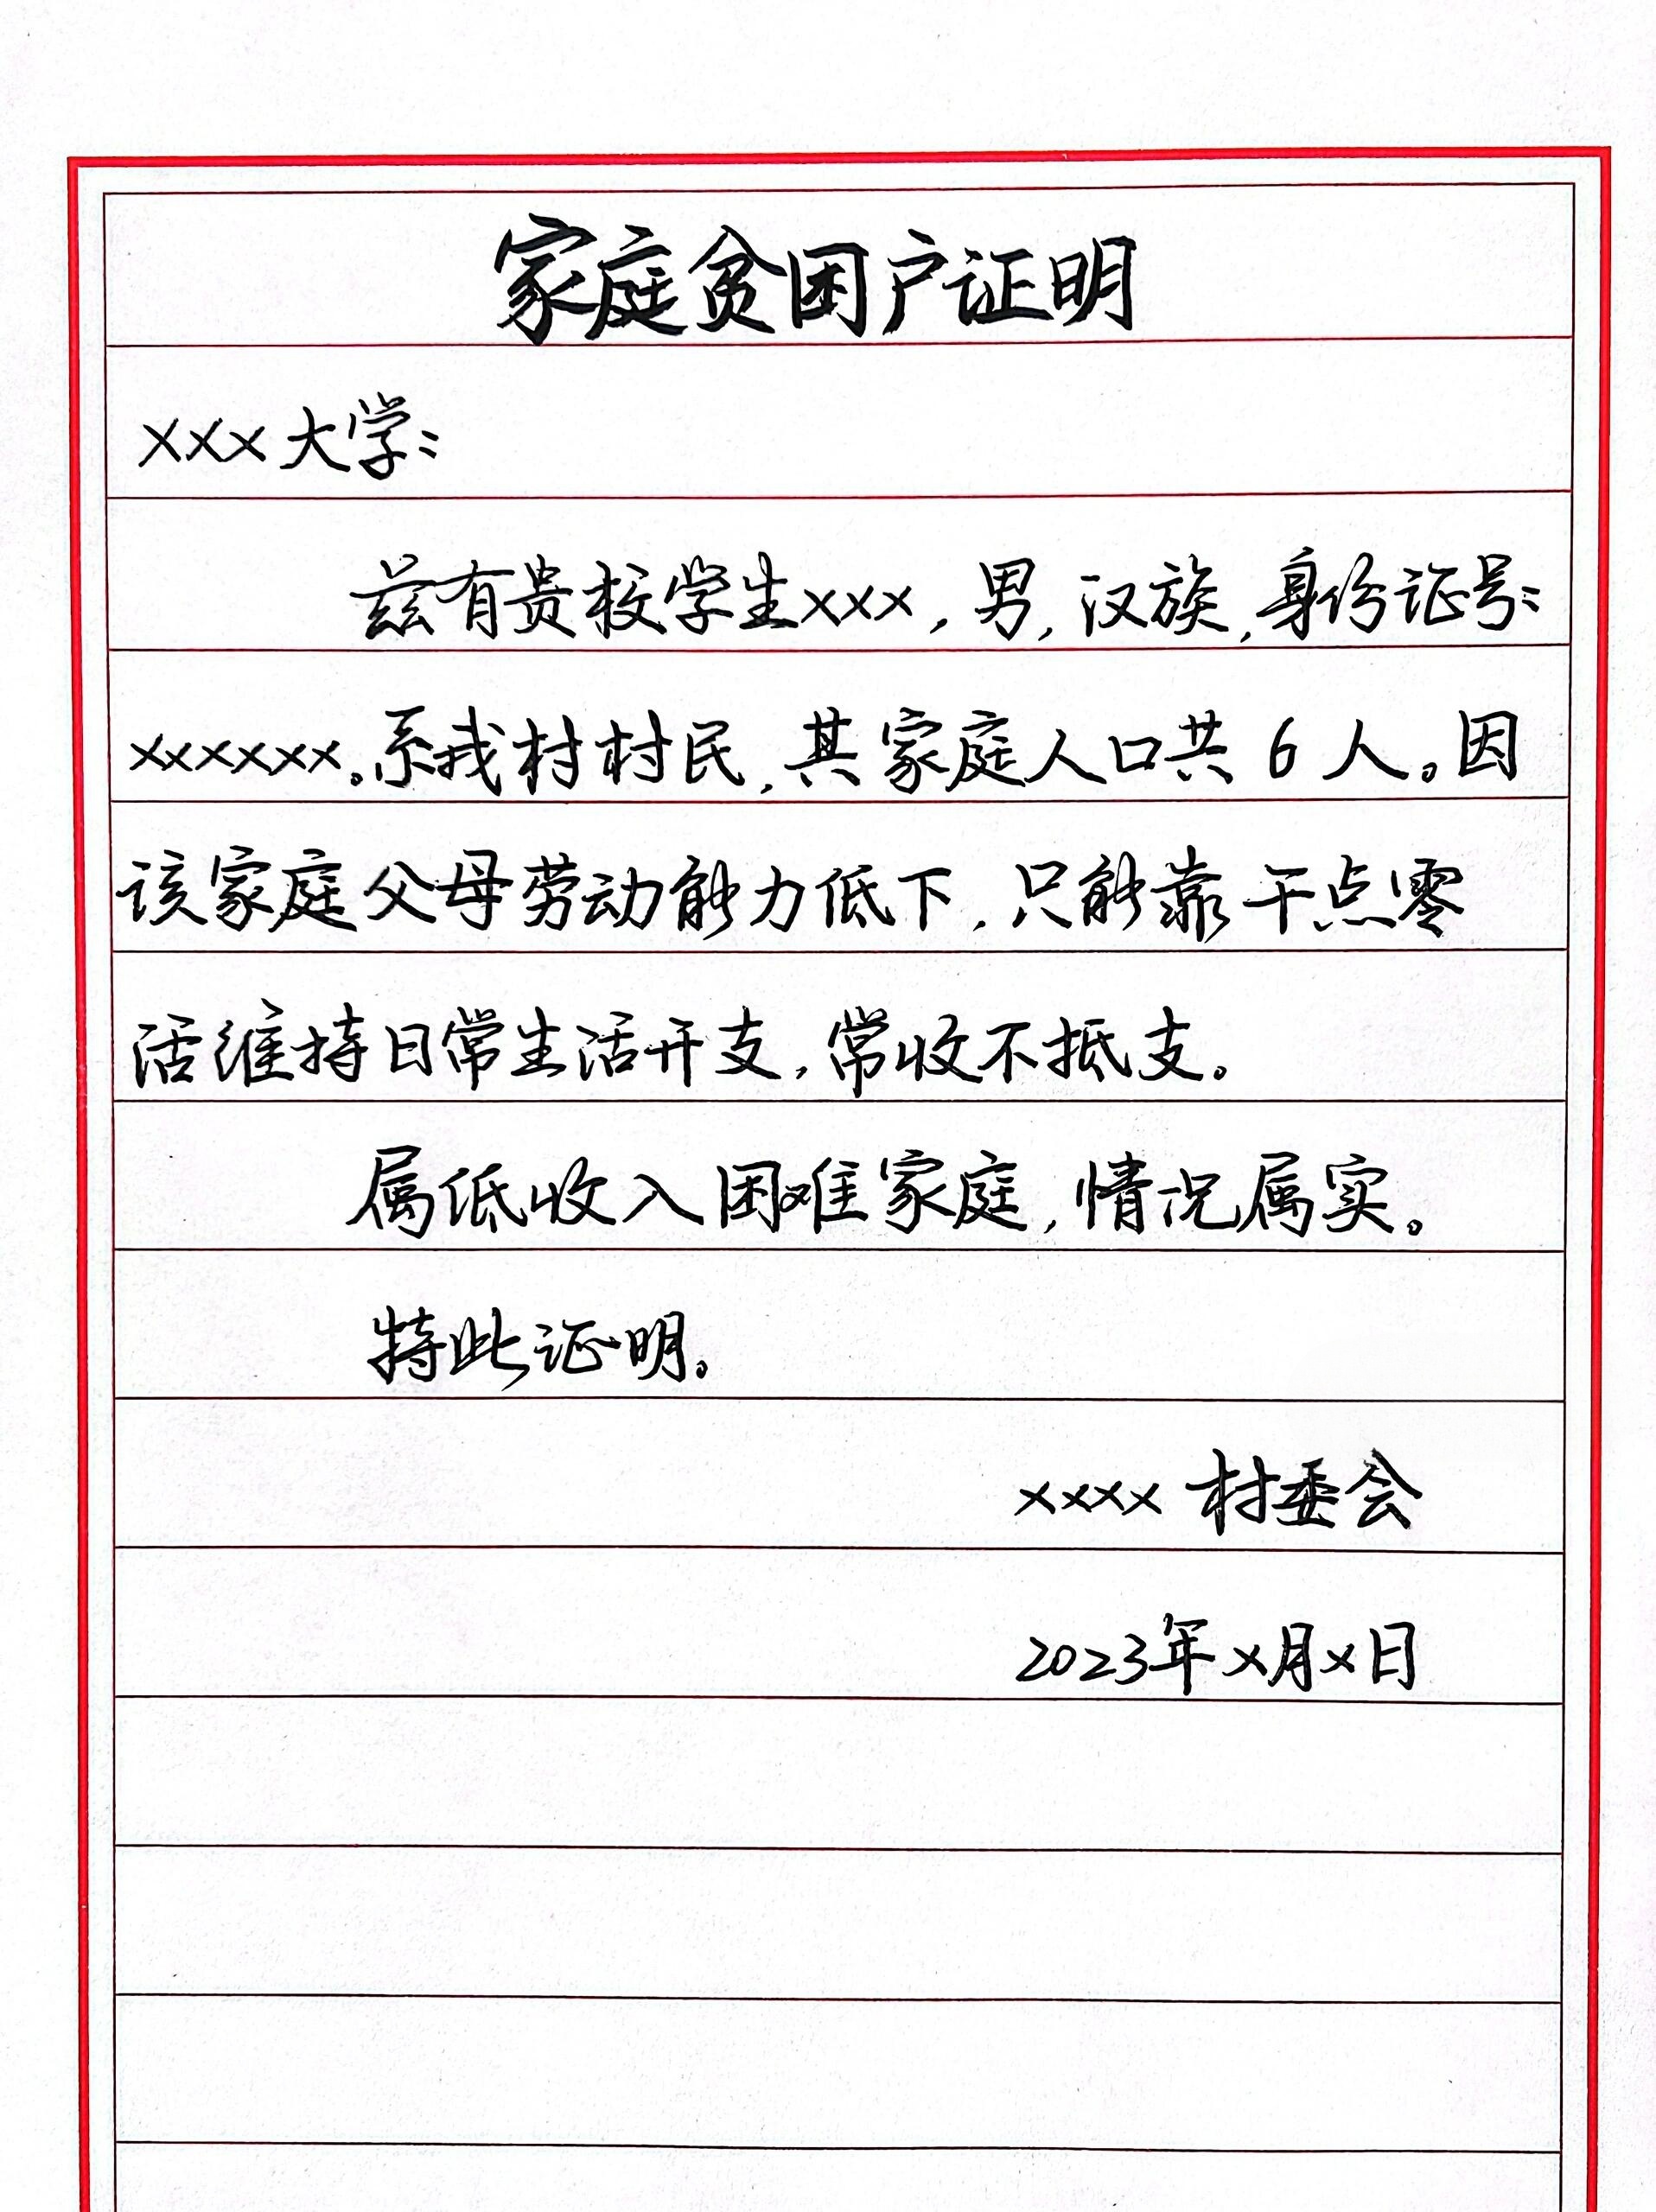 家庭贫困户证明
xxx大学:
兹有贵校学生xxx,男,汉族,身份证号:
xxxxxx。系我村村民,其家庭人口共6人。因
该家庭父母劳动能力低下,只能靠干点零
活维持日常生活开支,常收不抵支。
属低收入困难家庭,情况属实。
特此证明。
xxxx村委会
2023年x月x日